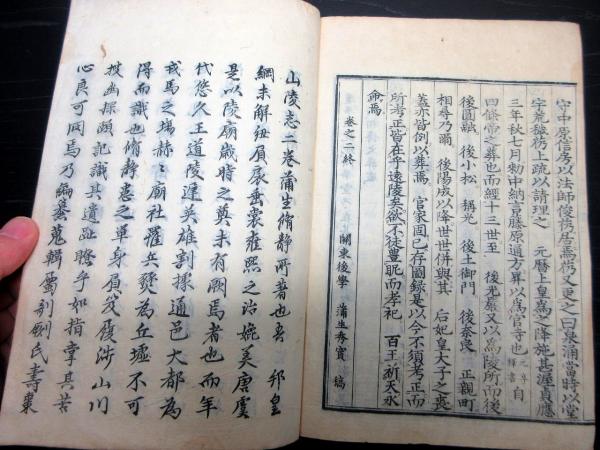 守中原信房以法師俊芿居焉芿又更之曰泉涌當時以堂
宇荒穢芿上疏以請理之　元曆上皇爲之降施甚渥貞應
三年秋七月勅中納言藤原道方葬以爲官寺也元亨釋書自
四條帝之葬也而經十三世至　後光嚴又以爲陵所而後
後圓融　後小松　稱光　後土御門　後奈良　正親町
相尋乃爾　後陽成以降世世併與其　后妃皇大子之喪
蓋亦皆例以葬焉　官家固已存圖錄是以今不須考正而
所考正皆在乎遠陵矣欲不徒豐昵而孝祀　百王祈天永
命焉
卷之二終　　關東後學　蒲生秀實　稿
山陵志二卷蒲生脩靜所著也吾　邦皇
綱未解紐屓扆垂裳雍熙之治媲美唐虞
是以陵廟歲時之奠未有闕焉者也而年
代悠久王道陵遲英雄割據通邑大都爲
戎馬之場赫赫廟社罹兵燹爲丘墟不可
得而識也脩靜恚之單身屓笈履涉山川
披幽探頗記識其遺趾瞭乎如指掌其苦
心良可罔焉乃編纂蒐輯屬剞劂氏壽棗